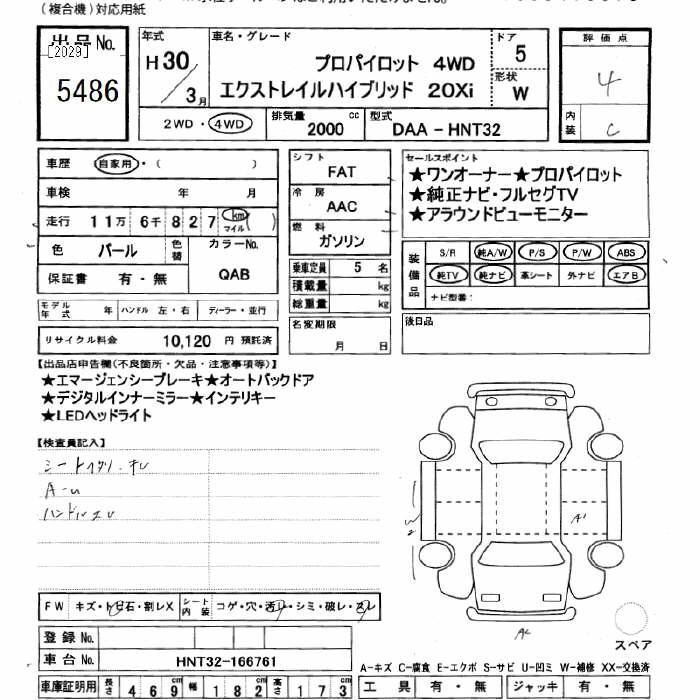 (複合機)対応用紙
出品No. [2029] 5486
年式 H30/3月
車名・グレード プロパイロット 4WD
エクストレイルハイブリッド 20Xi
ドア 5
形状 W
評価点 4
内装 C
2WD・4WD
排気量 2000 cc
型式 DAA-HNT32
車歴 自家用・( )
車検 年 月
走行 11万6千827 km マイル ( )
色 パール 色替
カラーNo. QAB
保証書 有・無
モデル年式 年 ハンドル 左・右 ディーラー・並行
リサイクル料金 10,120 円 預託済
シフト FAT
冷房 AAC
燃料 ガソリン
乗車定員 5 名
積載量 kg
総重量 kg
名変期限 月 日
セールスポイント
★ワンオーナー★プロパイロット
★純正ナビ・フルセグTV
★アラウンドビューモニター
装備品 S/R 純A/W P/S P/W ABS
純TV 純ナビ 革シート 外ナビ エアB
ナビ型番:
後日品
【出品店申告欄(不良箇所・欠品・注意事項等)】
★エマージェンシーブレーキ★オートバックドア
★デジタルインナーミラー★インテリキー
★LEDヘッドライト
【検査員記入】
A-u
W2
A1
FW キズ・トビ石・割レX
シート内装 コゲ・穴・汚レ・シミ・破レ・スレ
登録No.
車台No. HNT32-166761
車庫証明用 長さ 469cm 幅 182cm 高さ 173cm
スペア
A-キズ C-腐食 E-エクボ S-サビ U-凹ミ W-補修 XX-交換済
工具 有・無 ジャッキ 有・無